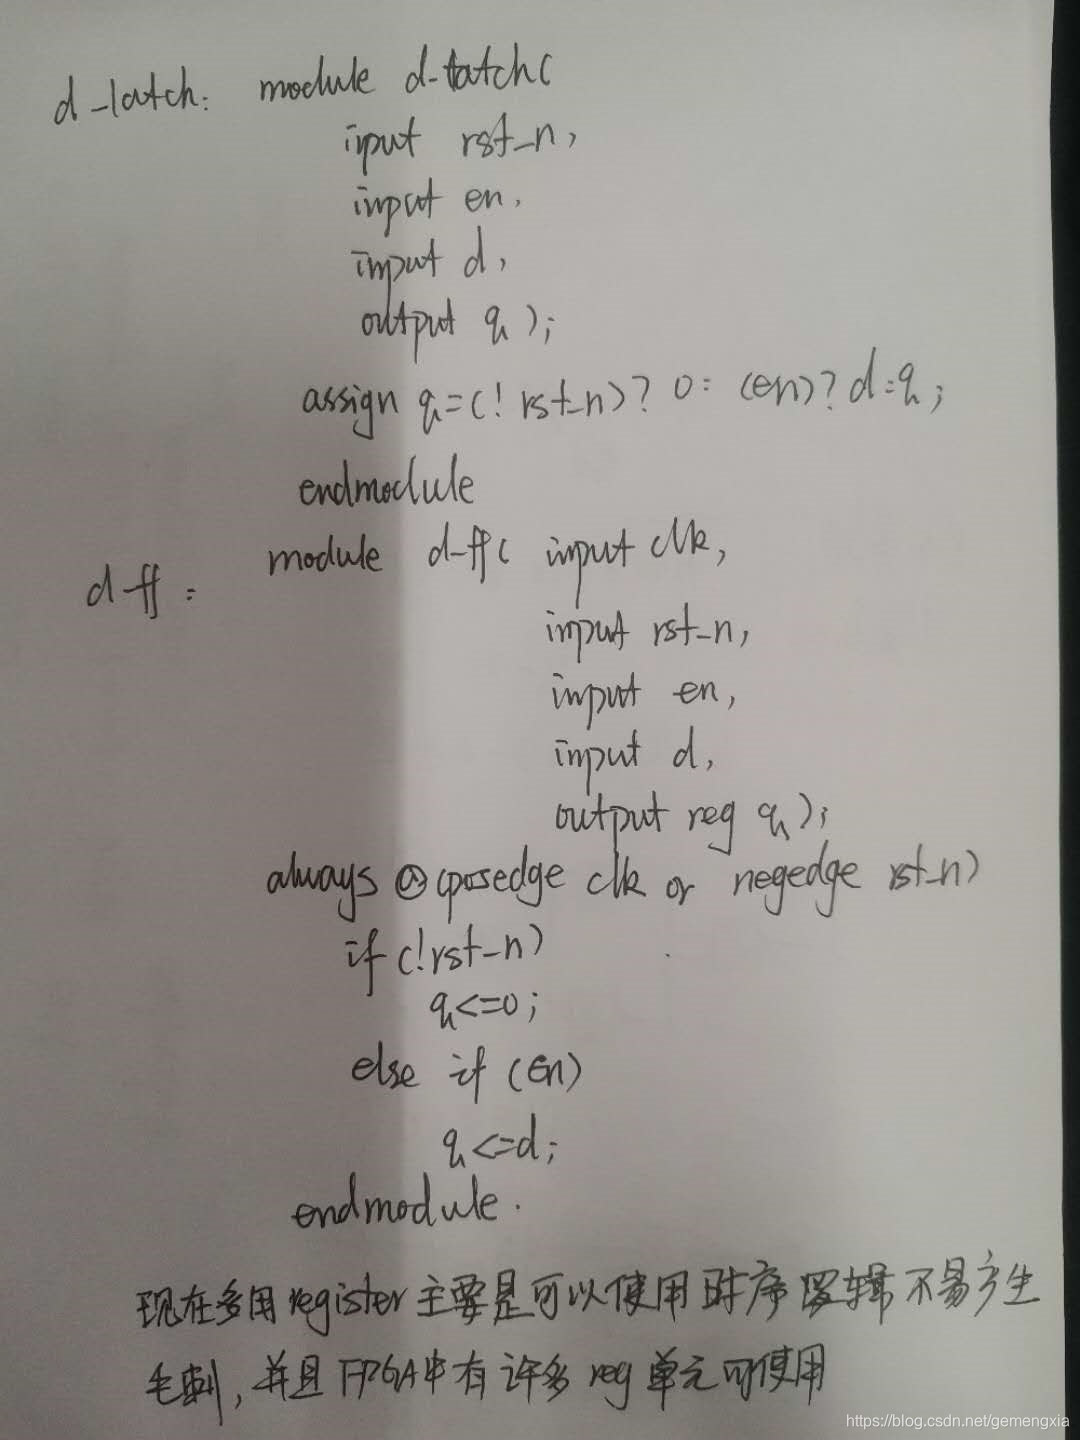 d_latch: module d-latch(
input rst_n,
input en,
input d,
output q);
assign q=(!rst_n)?0:(en)?d:q;
endmodule
d-ff: module d-ff( input clk,
input rst_n,
input en,
input d,
output reg q);
always @(posedge clk or negedge rst_n)
if (!rst_n)
q<=0;
else if (en)
q<=d;
endmodule.
现在多用register主要是可以使用时序逻辑不易产生
毛刺,并且FPGA中有许多reg单元可使用
https://blog.csdn.net/gemengxia